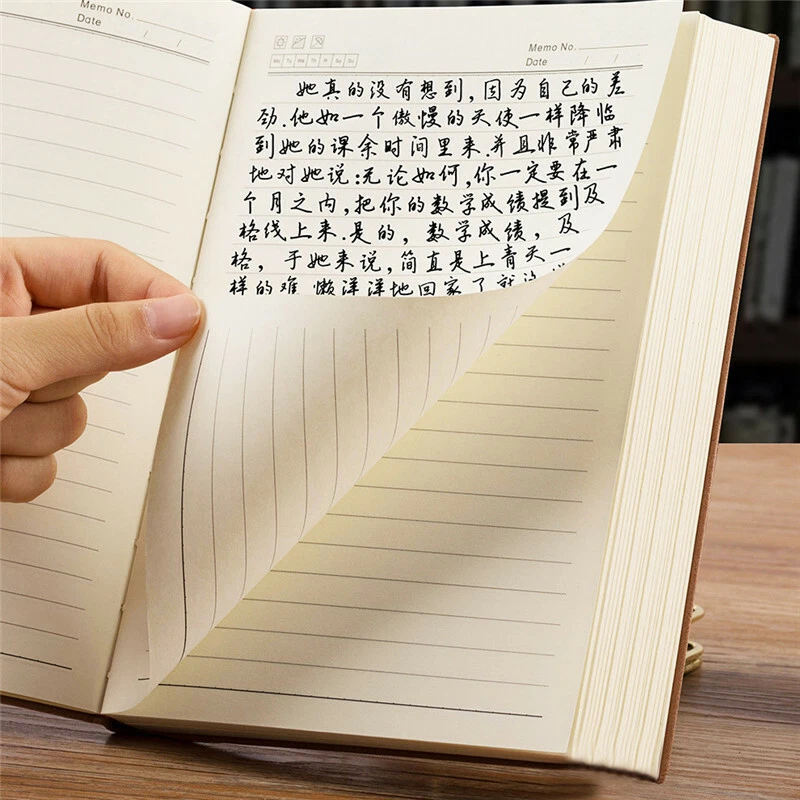 Memo No.
Date / /
Memo No.
Date / /
Mo Tu We Th Fr Sa Su
她真的没有想到,因为自己的差
劲.他如一个傲慢的天使一样降临
到她的课余时间里来.并且非常严肃
地对她说:无论如何,你一定要在一
个月之内,把你的数学成绩提到及
格线上来.是的,数学成绩,及
格,于她来说,简直是上青天一
样的难 懒洋洋地回家了就